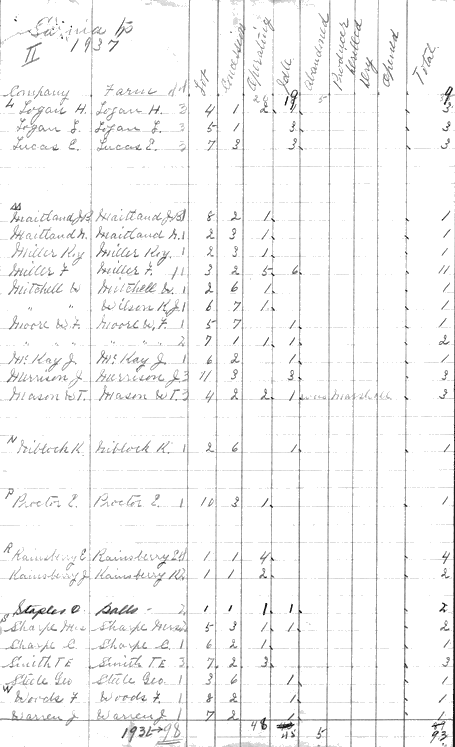 Sarnia Tp
II 1937
Company Farm Lot Concession Operating Idle Abandoned Producer Drilled Dry Opened Total
L Logan H. Logan H. 3 4 1 2 1 3
Logan L. Logan L. 3 5 1 3 3
Lucas E. Lucas E. 3 7 3 3 3
M
Maitland J.B. Maitland J.B. 1 8 2 1 1
Maitland N. Maitland N. 1 2 3 1 1
Miller Roy Miller Roy. 1 2 3 1 1
Miller F. Miller F. 11 3 2 5 6 11
Mitchell W Mitchell W. 1 2 6 1 1
" " Wilson R.J. 1 6 7 1 1
Moore W.F. Moore W.F. 1 5 7 1 1
" " " " 2 7 1 1 1 2
McKay J. McKay J. 1 6 2 1 1
Morrison J Morrison J. 3 11 3 3 3
Mason W.T. Mason W.T. 3 4 2 2 1 was Marshall 3
N
Niblock R. Niblock R. 1 2 6 1 1
P
Proctor E. Proctor E. 1 10 3 1 1
R
Rainsberry E Rainsberry E 4 1 1 4 4
Rainsberry J Rainsberry R. 2 1 1 2 2
Staples O Balls - 2 1 1 1 1 2
S Sharpe Mrs Sharpe Mrs 2 5 3 1 1 2
Sharpe C. Sharpe C. 1 6 2 1 1
Smith T E Smith T E 3 7 2 3 3
Steele Geo Steele Geo. 1 3 6 1 1
W
Woods F. Woods F. 1 8 2 1 1
Warren J Warren J. 1 7 2 1 1
1936 → 98 48 45 5 93